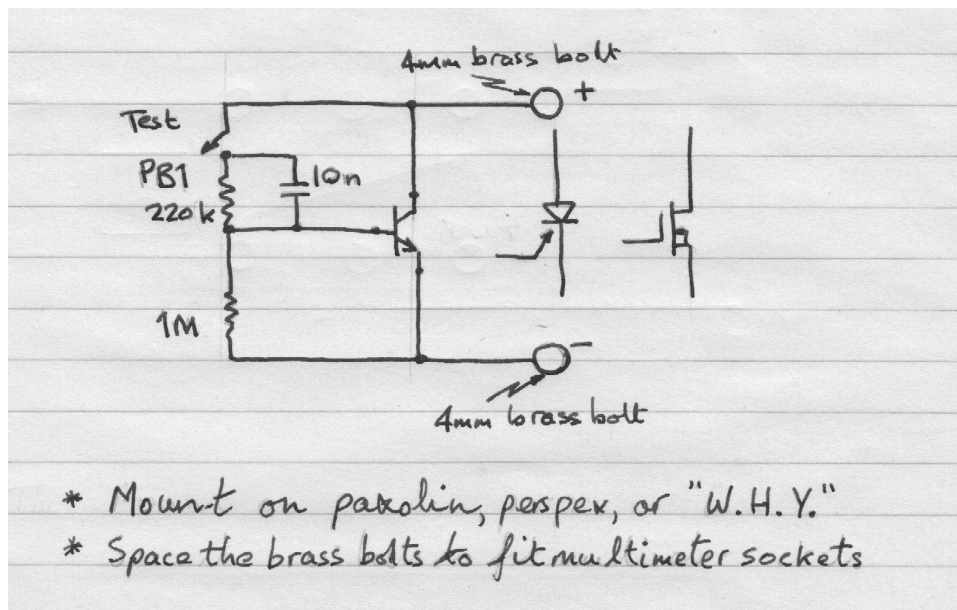 4mm brass bolt
+
Test
PB1
10n
220k
1M
-
4mm brass bolt
* Mount on paxolin, perspex, or "W.H.Y."
* Space the brass bolts to fit multimeter sockets